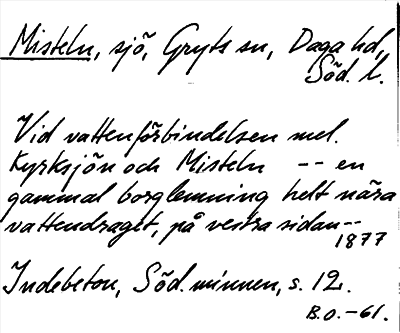 Misteln, sjö, Gryts sn, Daga hd,
Söd. l.
Vid vattenförbindelsen mel.
Kyrksjön och Misteln -- en
gammal borglemning helt nära
vattendraget, på vestra sidan --
1877
Indebetou, Söd. minnen, s. 12.
B.O. -61.